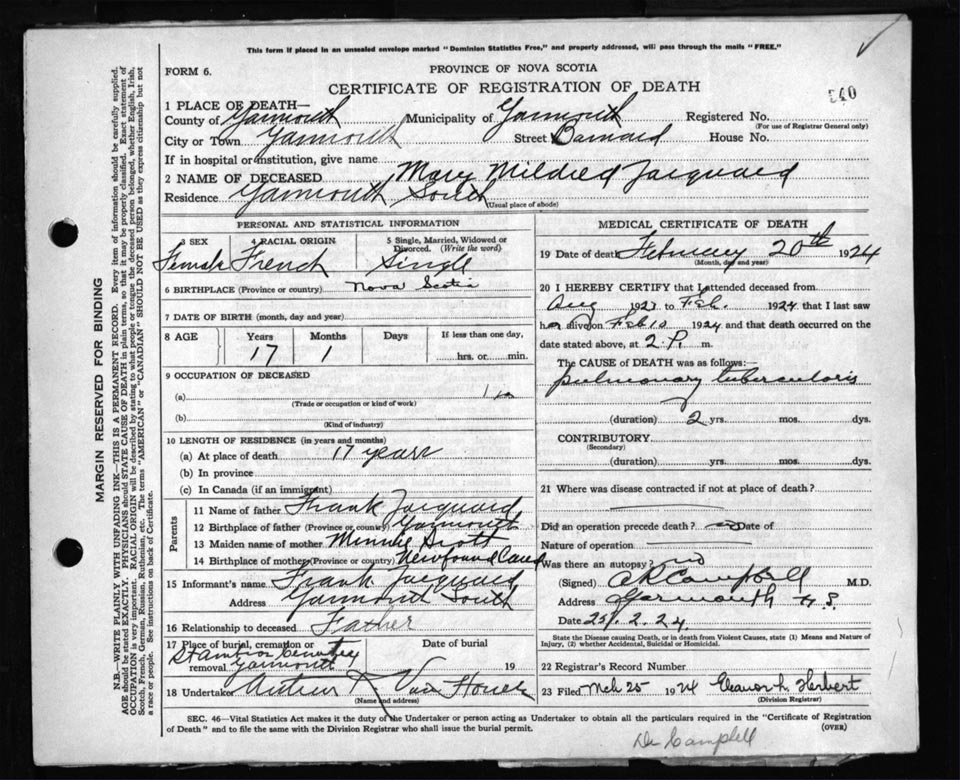 This form if placed in an unsealed envelope marked "Dominion Statistics Free," and properly addressed, will pass through the mails "FREE."
FORM 6.
PROVINCE OF NOVA SCOTIA
CERTIFICATE OF REGISTRATION OF DEATH
540
1 PLACE OF DEATH—
County of Yarmouth Municipality of Yarmouth Registered No.
(For use of Registrar General only)
City or Town Yarmouth Street Barnard House No.
If in hospital or institution, give name
2 NAME OF DECEASED Mary Mildred Jacquard
Residence Yarmouth South
(Usual place of abode)
PERSONAL AND STATISTICAL INFORMATION
3 SEX 4 RACIAL ORIGIN 5 Single, Married, Widowed or Divorced. (Write the word)
Female French Single
6 BIRTHPLACE (Province or country) Nova Scotia
7 DATE OF BIRTH (month, day and year)
8 AGE Years Months Days If less than one day,
17 1 hrs. or min.
9 OCCUPATION OF DECEASED
(a)
(Trade or occupation or kind of work)
(b)
(Kind of industry)
10 LENGTH OF RESIDENCE (in years and months)
(a) At place of death 17 years
(b) In province
(c) In Canada (if an immigrant)
Parents
11 Name of father Frank Jacquard
12 Birthplace of father (Province or country) Yarmouth
13 Maiden name of mother Minnie Scott
14 Birthplace of mother (Province or country) Newfoundland
15 Informant's name Frank Jacquard
Address Yarmouth South
16 Relationship to deceased Father
17 Place of burial, cremation or removal Date of burial
Cemetery
Yarmouth 19
18 Undertaker Arthur Van Horne
(Name and address)
MEDICAL CERTIFICATE OF DEATH
19 Date of death February 20th 1924
(Month, day and year)
20 I HEREBY CERTIFY that I attended deceased from
Aug 1923 to Feb. 1924 that I last saw
her alive on Feb 10 1924 and that death occurred on the
date stated above, at 2 P. m.
The CAUSE of DEATH was as follows:—
pulmonary tuberculosis
(duration) 2 yrs. mos. dys.
CONTRIBUTORY
(Secondary)
(duration) yrs. mos. dys.
21 Where was disease contracted if not at place of death?
Did an operation precede death? no Date of
Nature of operation
Was there an autopsy? no
(Signed) Campbell M.D.
Address Yarmouth N.S.
Date 25.2.24.
State the Disease causing Death, or in death from Violent Causes, state (1) Means and Nature of Injury, (2) whether Accidental, Suicidal or Homicidal.
22 Registrar's Record Number
23 Filed Mch 25 1924 Eleanor h Herbert
(Division Registrar)
SEC. 46—Vital Statistics Act makes it the duty of the Undertaker or person acting as Undertaker to obtain all the particulars required in the "Certificate of Registration
of Death" and to file the same with the Division Registrar who shall issue the burial permit. (OVER)
Dr Campbell
MARGIN RESERVED FOR BINDING
N.B.—WRITE PLAINLY WITH UNFADING INK—THIS IS A PERMANENT RECORD. Every item of information should be carefully supplied.
AGE should be stated EXACTLY. PHYSICIANS should STATE CAUSE OF DEATH in plain terms, so that it may be properly classified. Exact statement of
OCCUPATION is very important. RACIAL ORIGIN will be described by stating to what people or tongue the deceased person belonged, whether English, Irish,
Scotch, French, German, Russian, Ruthenian, etc. The terms "AMERICAN" or "CANADIAN" SHOULD NOT BE USED as they express citizenship but not
a race or people. See instructions on back of Certificate.